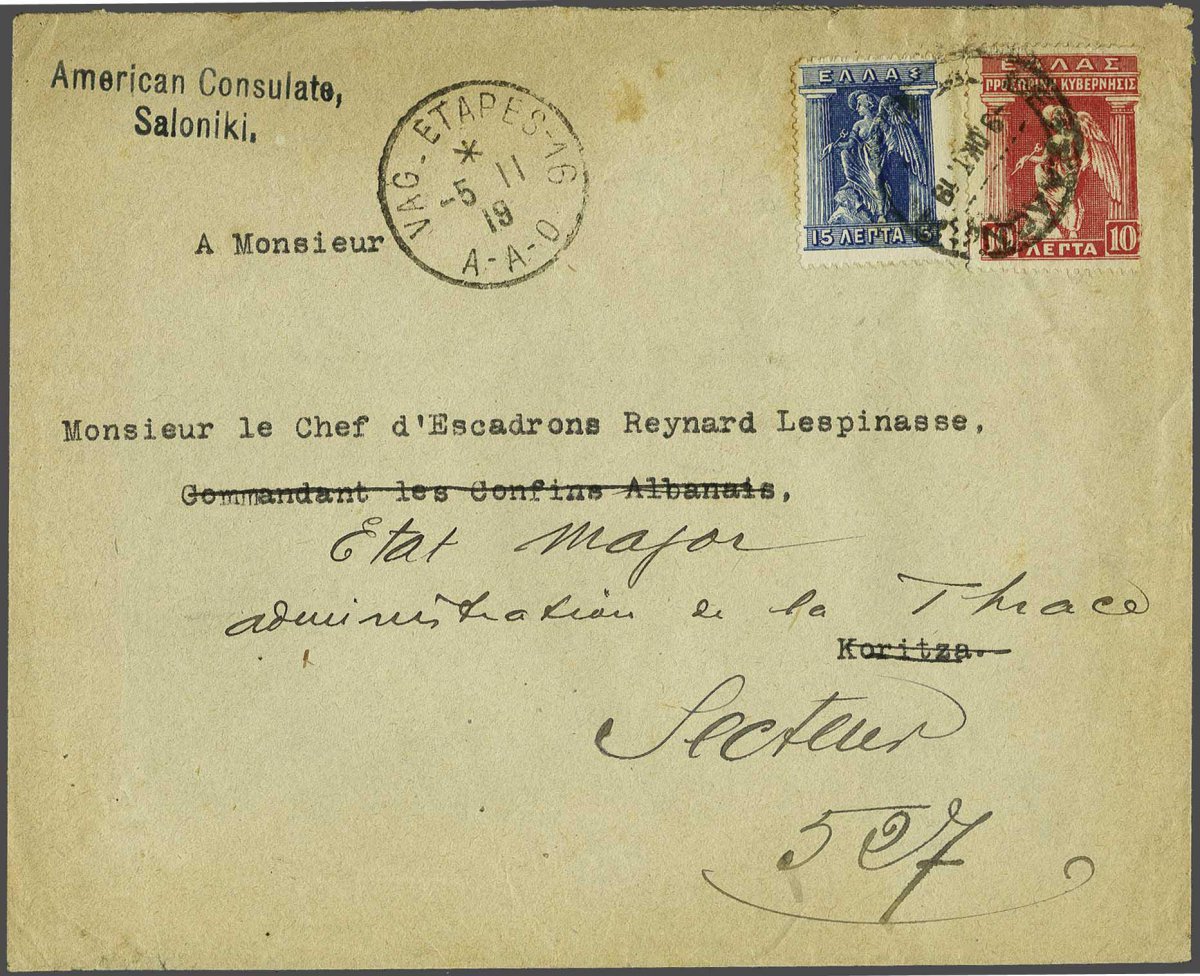 American Consulate,
Saloniki.
VAG-ETAPES-16
*
-5 11
19
A-A-O
ΕΛΛΑΣ
15 ΛΕΠΤΑ 15
ΕΛΛΑΣ
ΚΥΒΕΡΝΗΣΙΣ
ΛΕΠΤΑ 10
ΟΚΤ. 19
A Monsieur
Monsieur le Chef d'Escadrons Reynard Lespinasse,
Commandant les Confins Albanais,
Etat Major
administration de la Thrace
Koritza.
Secteur
527